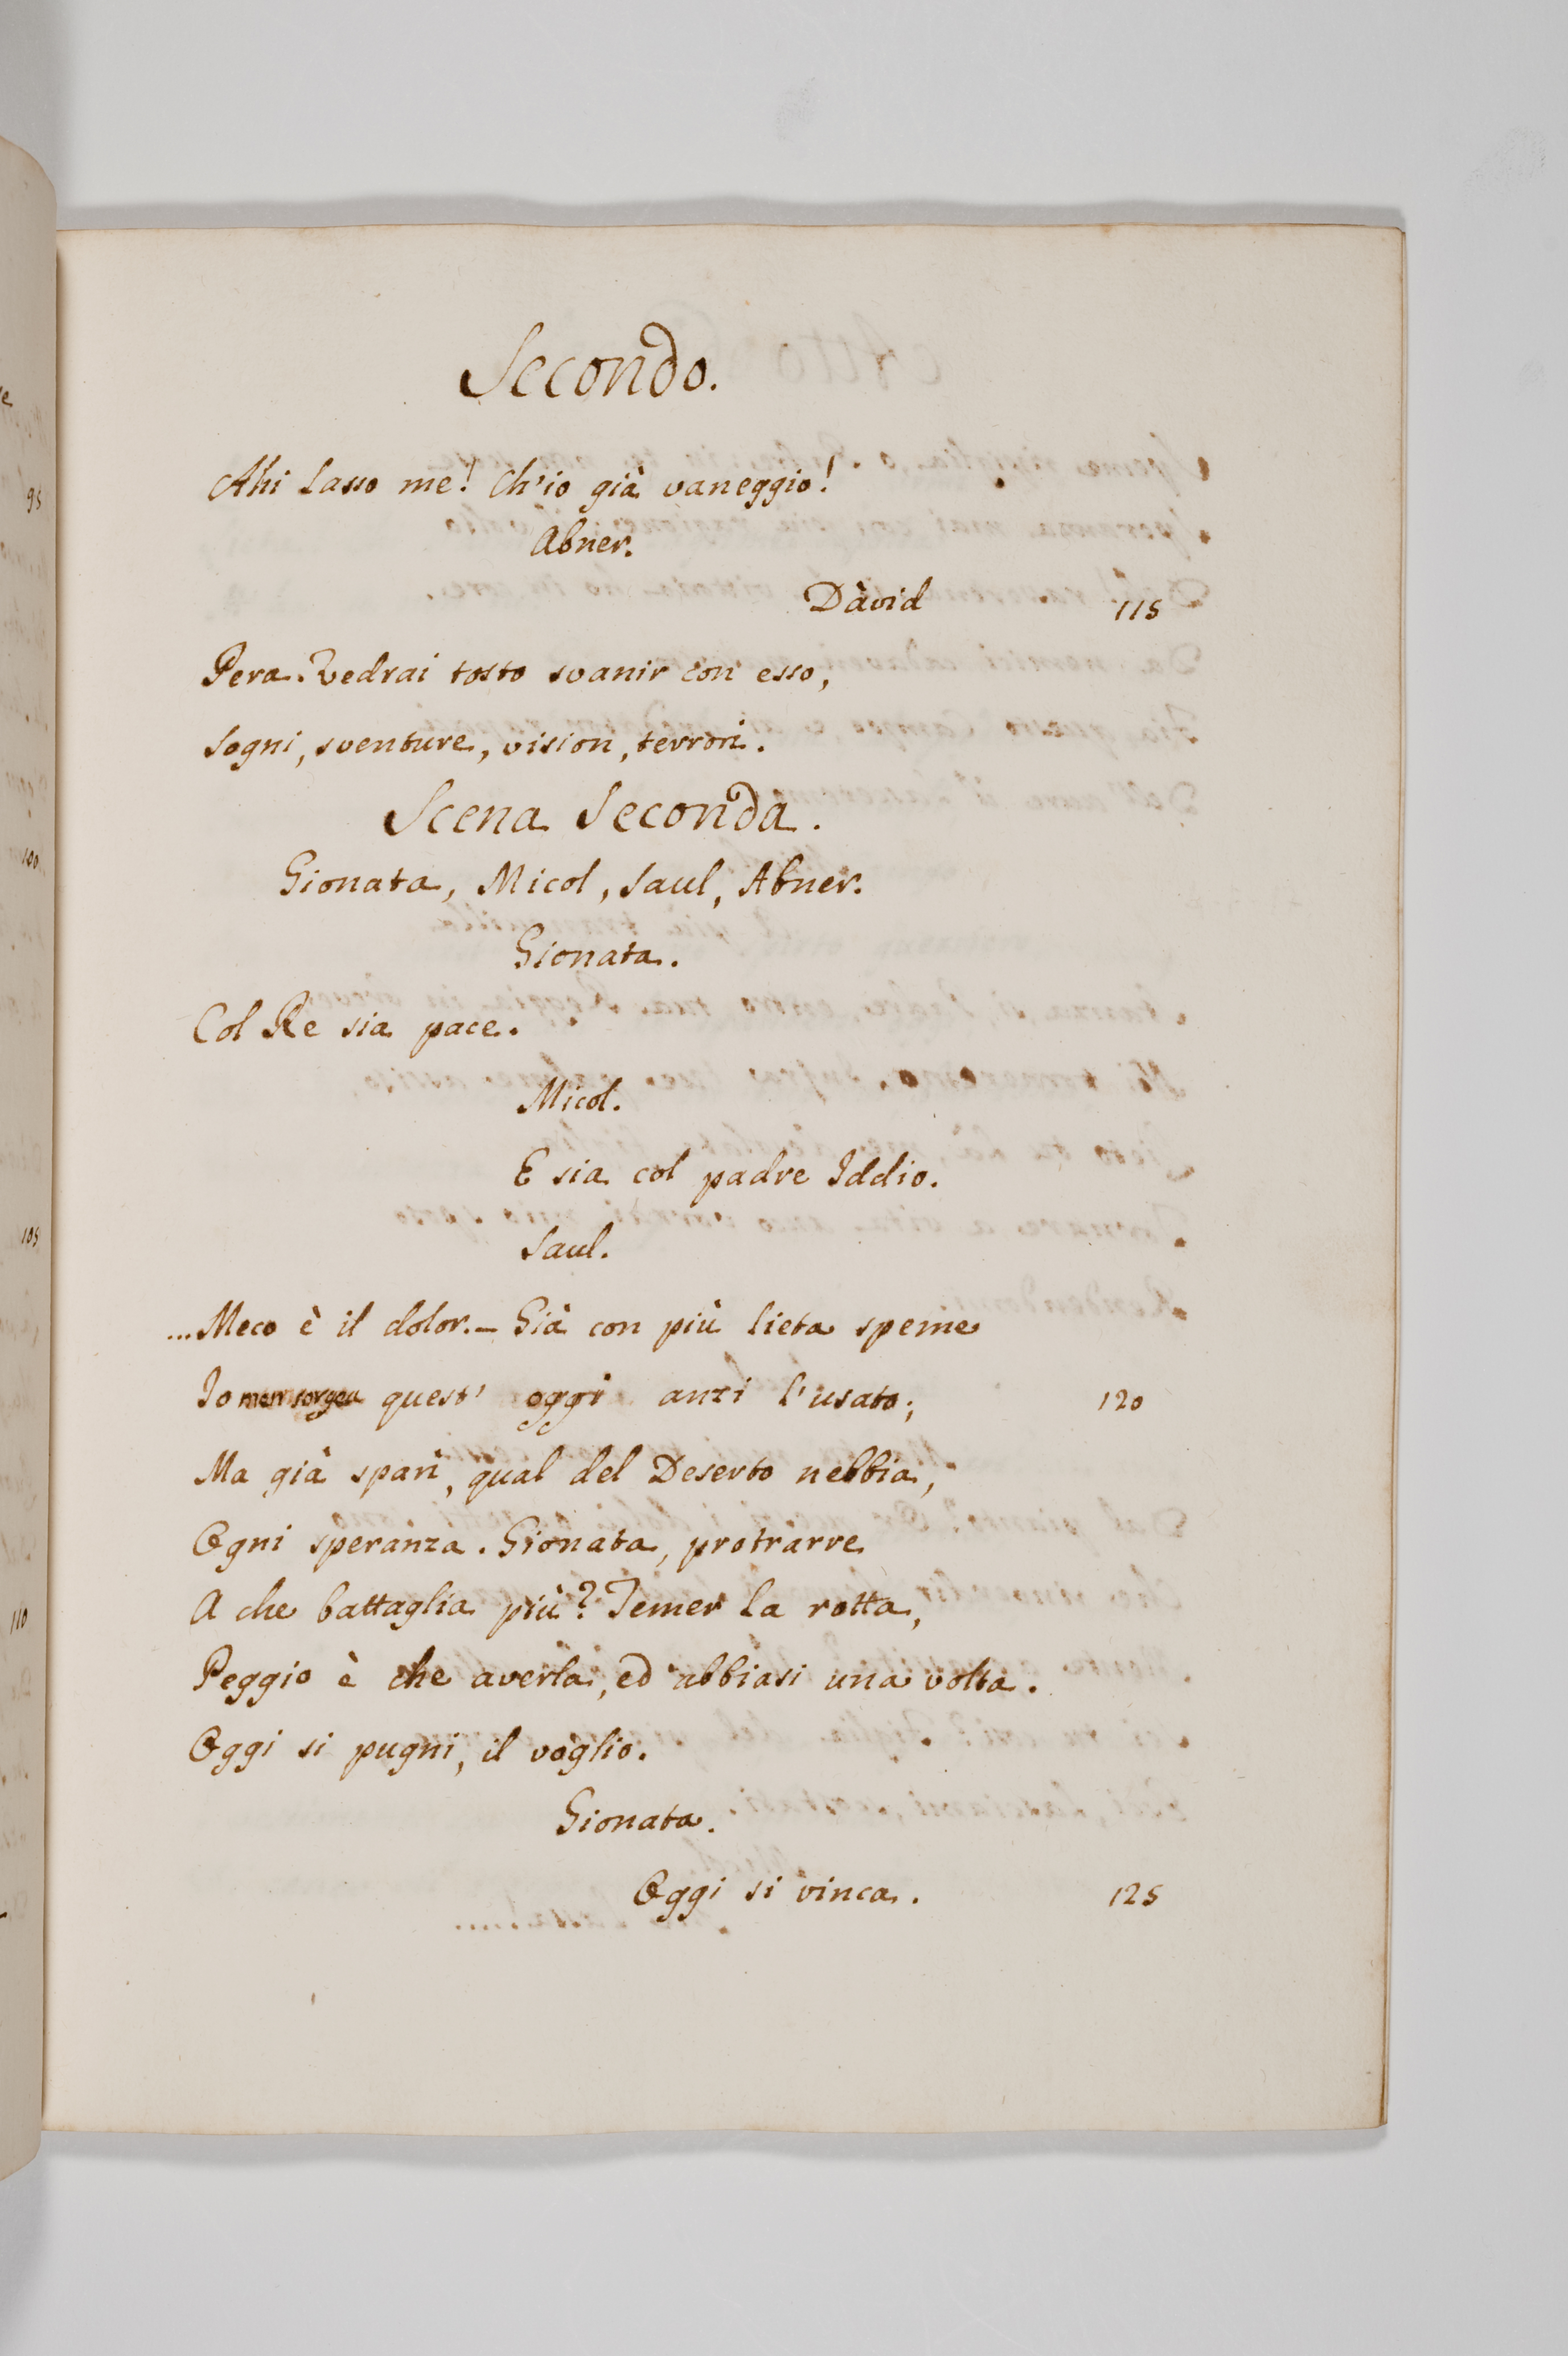 Secondo.
Ahi lasso me! Ch'io già vaneggio!
Abner.
Dàvid 115
Pera. Vedrai tosto svanir con esso,
Sogni, sventure, vision, terrori.
Scena Seconda.
Gionata, Micol, Saul, Abner.
Gionata.
Col Re sia pace.
Micol.
E sia col padre Iddio.
Saul.
...Meco è il dolor.— Già con più lieta speme
Io men sorgea quest' oggi anzi l'usato; 120
Ma già sparì, qual del Deserto nebbia,
Ogni speranza. Gionata, protrarre
A che battaglia più? Temer la rotta,
Peggio è che averla, ed abbiasi una volta.
Oggi si pugni, il voglio.
Gionata.
Oggi si vinca. 125
95
100
105
110